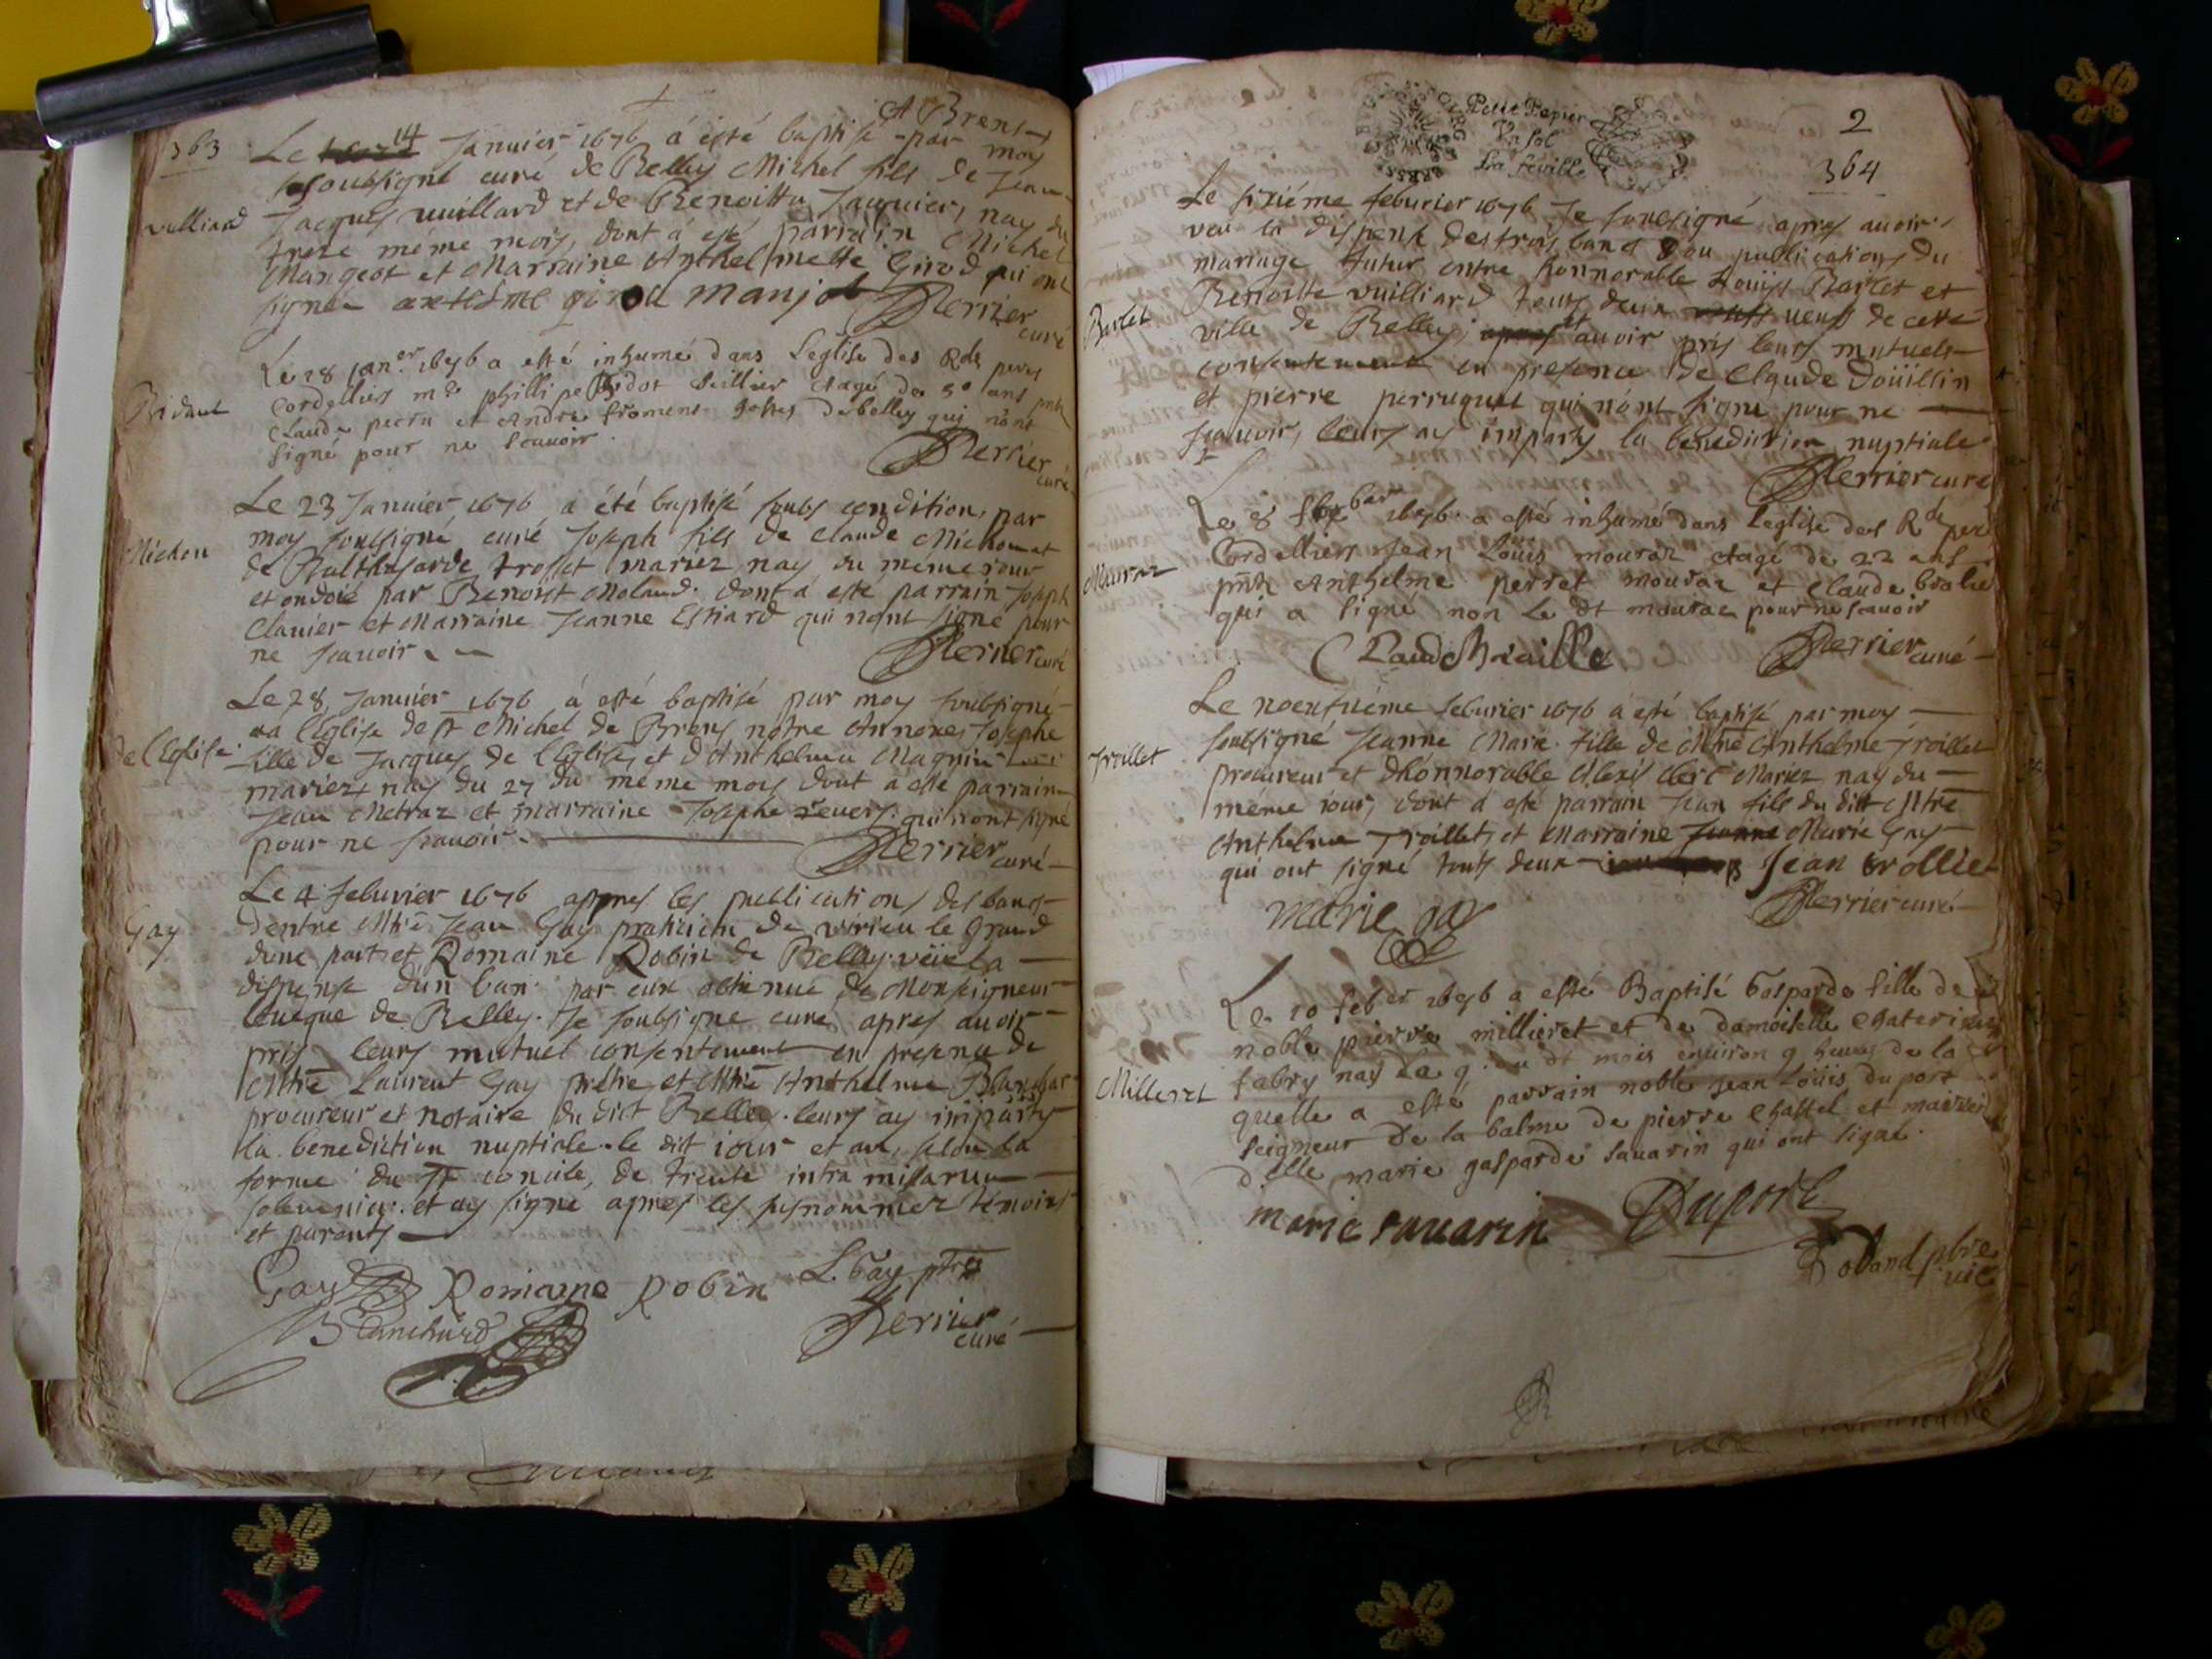 A Brens
363
Le 14 Januier 1676 á esté baptisé par moy
soubsigné curé de Belley Michel fils de Jean
vulliard
Jacques vuillard et de Benoitte Jaquier, nay du
treze même mois, dont á esté parrain Michel
Mangeot et Marraine Anthelmette Girod qui ont
signez antelme girod manjot Perrier
curé
Le 18 jan.er 1676 a esté inhumé dans Leglise des Rds peres
Bidaut
Cordelliers mre phillipe Bidot seillier Aagé de 50 ans pnts
Claude et André froment testes de belley qui nont
signé pour ne scauoir.
Perrier
curé
Le 23 Januier 1676 a été baptisé soubs condition, par
Michon
moy soubsigné curé Joseph fils de Claude Michon et
de Balthasarde trosset mariez nay du meme iour
et ondoié par Benoist Moland. dont á esté parrain Joseph
Clauier et Marraine Jeanne Estiard qui nont signé pour
ne scauoir
Perrier curé
Le 28 Januier 1676 á esté baptisé par moy soubsigné
á l'Eglise de st Michel de Brens notre Annexe, Josephe
de l'Eglise
fille de Jacques de l'Eglise, et d'Anthelma Magnin
mariez, nay du 27 du même mois dont á esté parrain
Jean Metraz et marraine Josephe reuers. qui nont signé
pour ne scauoir
Perrier
curé
Le 4 februrier 1676 apres les publications des bancs
Gay
d'entre Mre Jean Gay praticien de virieu le Grand
dune part et Romaine Robin de Belley veüe la
dispense d'un ban par eux obtenue de Monseigneur
leueque de Belley. Je soubsigné curé, apres auoir
pris leurs mutuel consentement en presence de
Mre Laurent Gay prêtre, et Mre Anthelme Blanchar
procureur et notaire du dict Belley. leurs ay imparty
la benediction nuptiale. le dit iour et an, selon la
forme du st concile, de trente intra missarum
solemnia. et ay signé apres les susnommez témoins
et parents
Gay Romaine Robin L. Gay ptre
Blanchard Perrier
curé
Petit Papier
Vn sol
La feuille
2
364
Le sixiéme feburier 1676 Je soubsigné apres auoir
veu la dispense des trois bancs ou publications du
mariage futur entre honnorable Loüys Barlet et
Barlet
Benoitte vuilliard touts deux ueufs de cette
ville de Belley; et auoir pris leurs mutuels
consentement en presence de Claude Doüillin
et pierre perruquet qui n'ont signé pour ne
scauoir, leurs ay imparty la benediction nuptiale
Perrier curé
Le 8 1676 a esté inhumé dans Leglise des Rds peres
Cordelliers Jean Loüis mouraz Aagé de 22 ans
Mouraz
pnts Anthelme perret mouraz et Claude bralie
qui a signé non Le dt mouraz pour ne scauoir
Claude Braille
Perrier
curé
Le noeufuiéme feburier 1676 á esté baptisé par moy
soubsigné Jeanne Marie fille de Mre Anthelme Trollet
Trollet
procureur et dhonnorable Alexis clerc Mariez nay du
même iour, dont á esté parrain Jean fils du dit Mtre
Anthelme Trollet, et Marraine Marie Gay
qui ont signé touts deux Jean trollie
marie gay
Perrier curé
Le 10 feber 1676 a esté Baptisé Gasparde fille de
noble pierre millieret et de damoiselle Chaterine
fabry nay Le 9 du dt mois enuiron 9 heures de la
Milleret
quelle a esté parrain noble Jean Loüis duport
seigneur de la balme de pierre Chastel et marrein
dlle marie gasparde sauarin qui ont signé.
marie sauarin Duport
pbre
vic